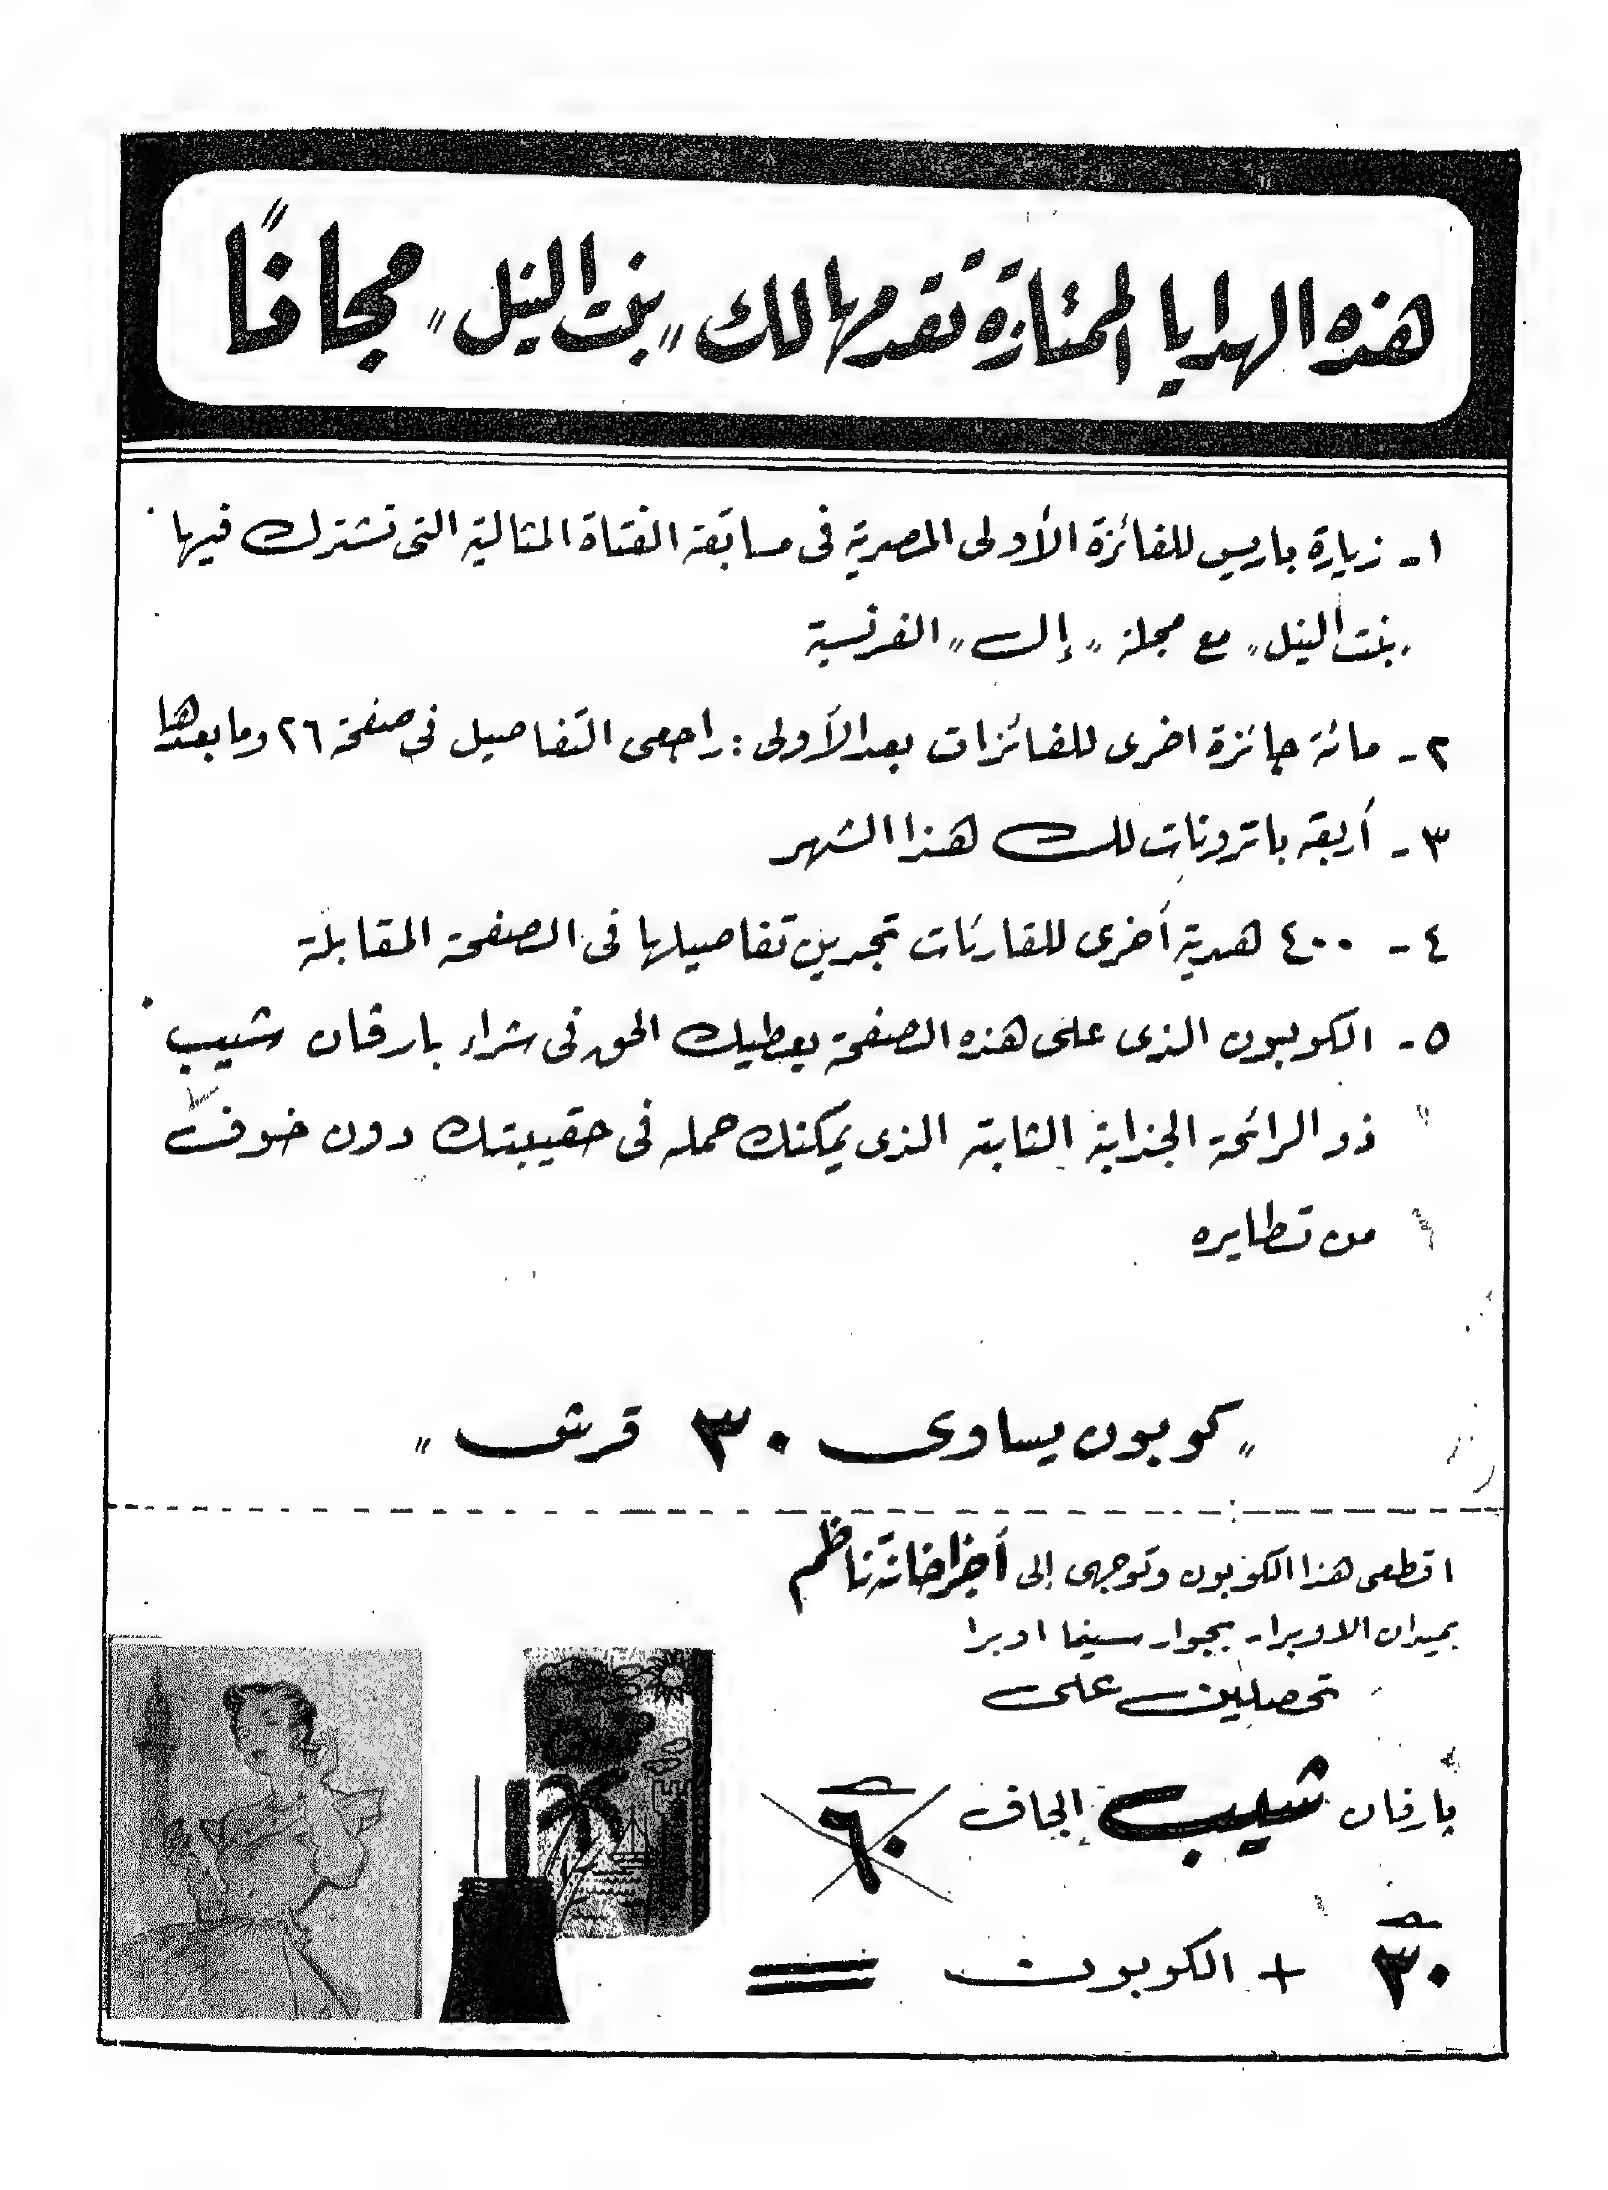 هذه الهدايا الممتازة تقدمها لك "بنت النيل" مجاناً
١- زيارة باريس للفائزة الأولى المصرية فى مسابقة الفتاة المثالية التى تشترك فيها
"بنت النيل" مع مجلة "إلـ" الفرنسية
٢- مائة جائزة اخرى للفائزات بعد الأولى : راجعى التفاصيل فى صفحة ٢٦ وما بعدها
٣- أربعة باترونات لك هذا الشهر
٤- ٤٠٠ هدية أخرى للقارئات تجدين تفاصيلها فى الصفحة المقابلة
٥- الكوبون الذى على هذه الصفحة يعطيك الحق فى شراء بارفان شيب
ذو الرائحة الجذابة الثابتة الذى يمكنك حمله فى حقيبتك دون خوف
من تطايره
"كوبون يساوى ٣٠ قرش"
اقطعى هذا الكوبون وتوجهى إلى أجزاخانة ناظم
بميدان الاوبرا - بجوار سينما اوبرا
تحصلين على
بارفان شيب الجاف ٦٠
٣٠ + الكوبون =